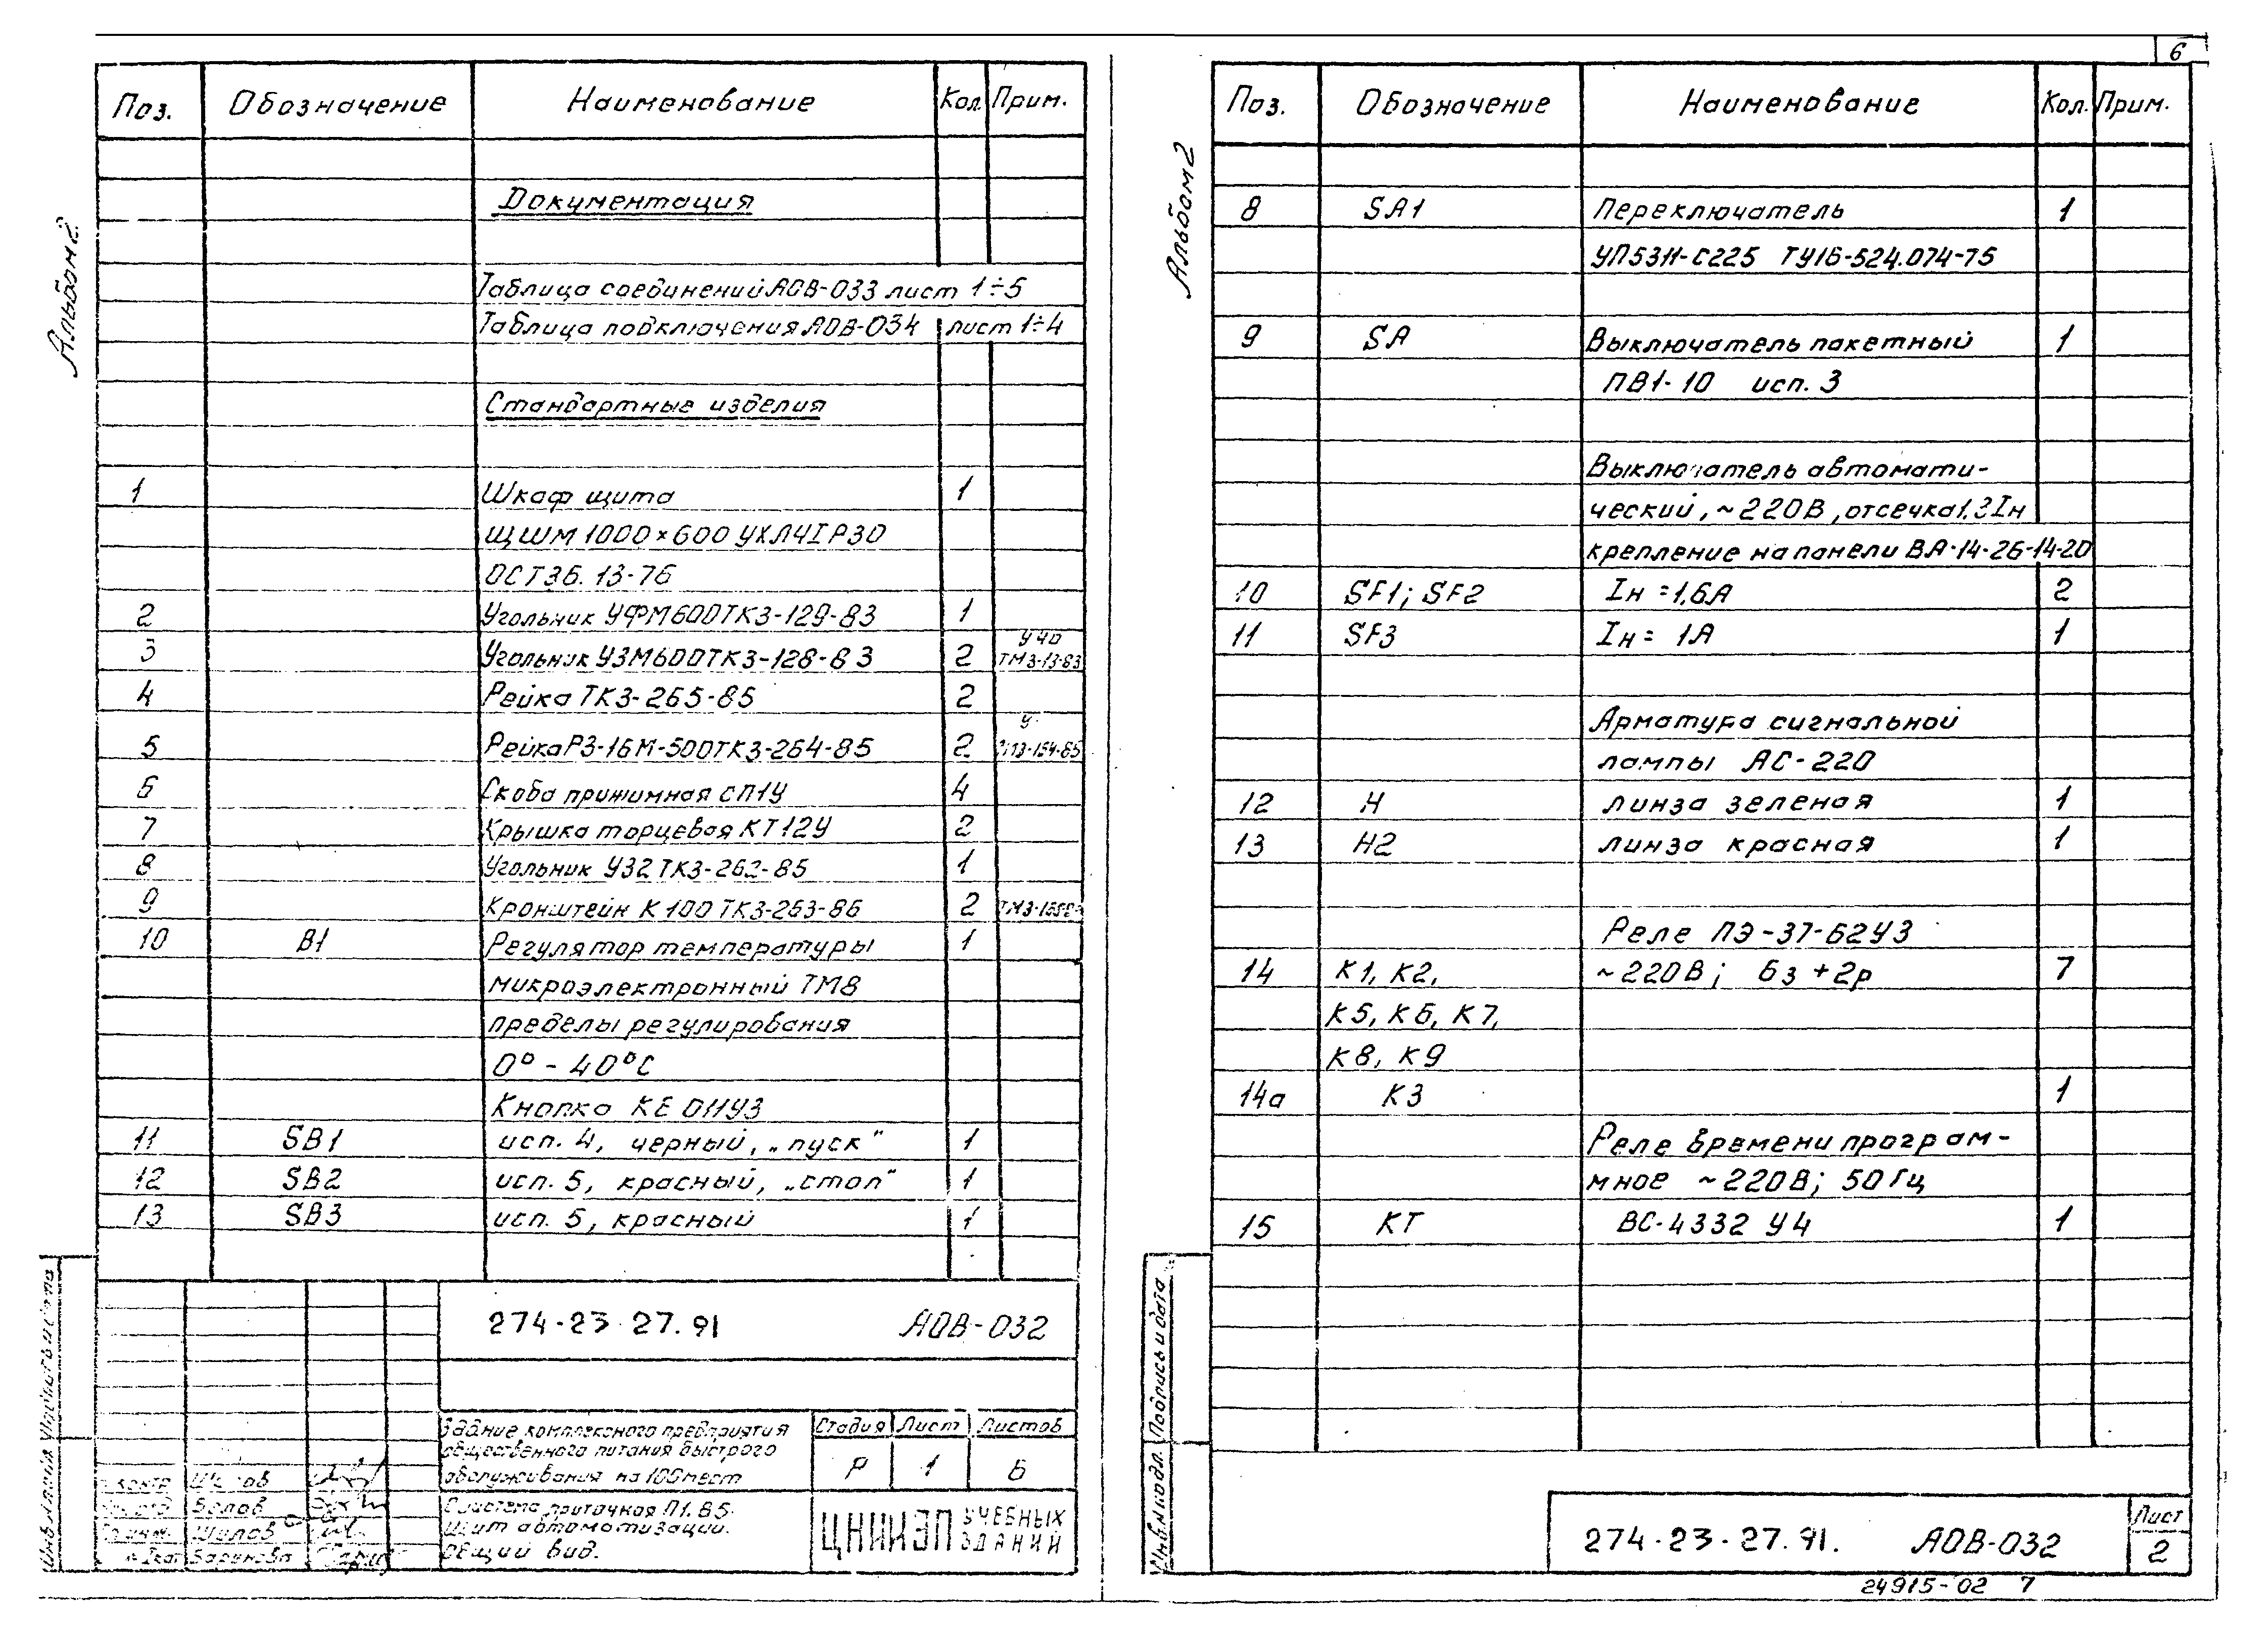 6
Альбом 2
Поз. Обозначение Наименование Кол. Прим.
Документация
Таблица соединений АОВ-033 лист 1÷5
Таблица подключения АОВ-034 лист 1÷4
Стандартные изделия
1 Шкаф щита 1
ЩШМ 1000×600 УХЛ4 IP30
ОСТ36.13-76
2 Угольник УФМ600ТК3-129-83 1
3 Угольник УЗМ600ТК3-128-83 2 У40 ТМ3-13-83
4 Рейка ТК3-265-85 2
5 Рейка Р3-16М-500ТК3-264-85 2
6 Скоба прижимная СП1У 4
7 Крышка торцевая КТ12У 2
8 Угольник У32 ТК3-262-85 1
9 Кронштейн К100 ТК3-263-86 2
10 В1 Регулятор температуры 1
микроэлектронный ТМ8
пределы регулирования
0° - 40°С
Кнопка КЕ 011У3
11 SB1 исп. 4, черный, „пуск" 1
12 SB2 исп. 5, красный, „стоп" 1
13 SB3 исп. 5, красный 1
274-23-27.91 АОВ-032
Здание комплексного предприятия
общественного питания быстрого
обслуживания на 100 мест
Стадия Лист Листов
Р 1 6
Система приточная П1, В5.
Щит автоматизации.
Общий вид.
ЦНИИЭП УЧЕБНЫХ ЗДАНИЙ
Белов
Шилов
Баринова
Альбом 2
Поз. Обозначение Наименование Кол. Прим.
8 SA1 Переключатель 1
УП5311-С225 ТУ16-524.074-75
9 SA Выключатель пакетный 1
ПВ1-10 исп. 3
Выключатель автомати-
ческий, ~220В, отсечка 1,3Iн
крепление на панели ВА-14-26-14-20
10 SF1; SF2 Iн = 1,6А 2
11 SF3 Iн = 1А 1
Арматура сигнальной
лампы АС-220
12 Н линза зеленая 1
13 Н2 линза красная 1
Реле ПЭ-37-62У3
14 К1, К2, ~220В; 6з + 2р 7
К5, К6, К7,
К8, К9
14а К3 1
Реле времени програм-
мное ~220В; 50Гц
15 КТ ВС-4332 У4 1
Инв.№ подл. Подпись и дата
274-23-27.91. АОВ-032
Лист
2
24915-02 7